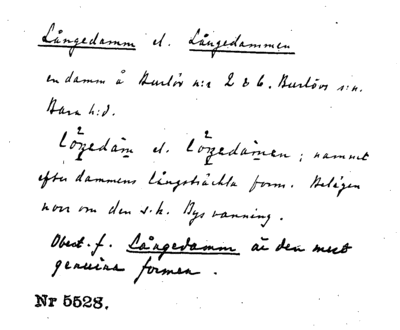 Långedamm el. Långedammen
en damm å Burlöv n:r 2 & 6. Burlövs s:n.
Bara h:d.
el. ; namnet
efter dammens långsträckta form. Belägen
norr om den s.k. Bysvanning.
Obest. f. Långedamm är den mest
genuina formen.
Nr 5528.